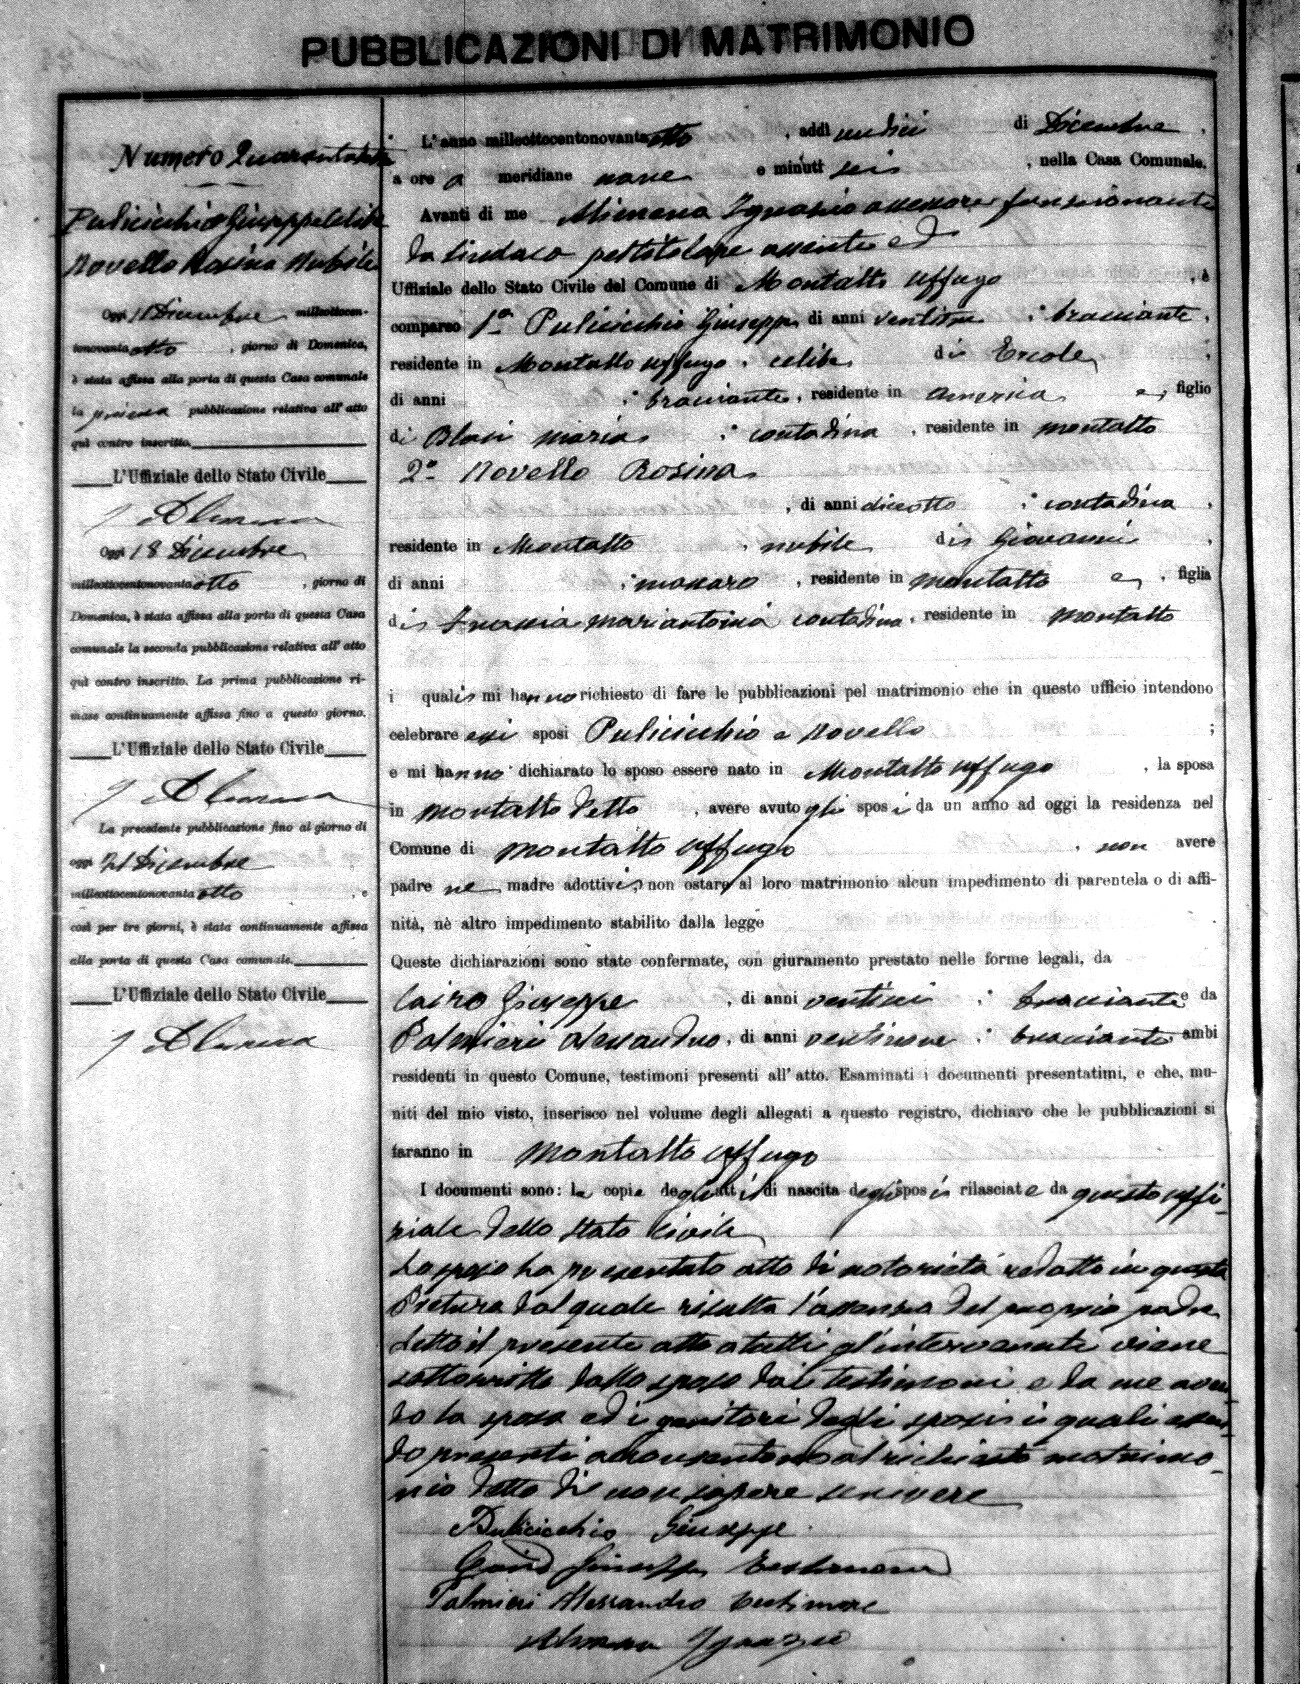 PUBBLICAZIONI DI MATRIMONIO
Numero
Pulicicchio Giuseppe celibe
Novello Rosina Nubile
Oggi 11 Dicembre milleottocen-
tonovanta otto, giorno di Domenica,
è stata affissa alla porta di questa Casa comunale
la prima pubblicazione relativa all'atto
quì contro inscritto.
L'Uffiziale dello Stato Civile
Oggi 18 Dicembre
milleottocentonovanta otto, giorno di
Domenica, è stata affissa alla porta di questa Casa
comunale la seconda pubblicazione relativa all'atto
quì contro inscritto. La prima pubblicazione ri-
mase continuamente affissa fino a questo giorno.
L'Uffiziale dello Stato Civile
La precedente pubblicazione fino al giorno di
oggi 21 Dicembre
milleottocentonovanta otto, e
così per tre giorni, è stata continuamente affissa
alla porta di questa Casa comunale.
L'Uffiziale dello Stato Civile
L'anno milleottocentonovanta otto, addì undici di Dicembre,
a ore a meridiane nove e minuti seis, nella Casa Comunale.
Avanti di me Alimena Ignazio assessore funzionante
da Sindaco pel titolare assente ed
Uffiziale dello Stato Civile del Comune di Montalto Uffugo, è
comparso 1º Pulicicchio Giuseppe, di anni ventitre, bracciante,
residente in Montalto Uffugo, celibe di Ercole,
di anni, bracciante, residente in America e, figlio
di Blasi Maria, contadina, residente in Montalto
2º Novello Rosina
, di anni diciotto, contadina,
residente in Montalto, nubile di Giovanni,
di anni, massaro, residente in Montalto e, figlia
di Mariantonia contadina, residente in Montalto
i quali mi hanno richiesto di fare le pubblicazioni pel matrimonio che in questo ufficio intendono
celebrare essi sposi Pulicicchio e Novello;
e mi hanno dichiarato lo sposo essere nato in Montalto Uffugo, la sposa
in Montalto detto, avere avuto gli sposi da un anno ad oggi la residenza nel
Comune di Montalto Uffugo, non avere
padre ne madre adottivi, non ostare al loro matrimonio alcun impedimento di parentela o di affi-
nità, nè altro impedimento stabilito dalla legge
Queste dichiarazioni sono state confermate, con giuramento prestato nelle forme legali, da
Cairo Giuseppe, di anni, bracciante e da
Palmieri Alessandro, di anni ventinove, bracciante ambi
residenti in questo Comune, testimoni presenti all'atto. Esaminati i documenti presentatimi, e che, mu-
niti del mio visto, inserisco nel volume degli allegati a questo registro, dichiaro che le pubblicazioni si
faranno in Montalto Uffugo
I documenti sono: le copie degli atti di nascita degli sposi rilasciate da questo Uffi-
ziale dello Stato Civile
Lo sposo ha presentato atto di notorietà redatto in questa
Pretura dal quale risulta l'assenza del proprio padre
Letto il presente atto a tutti gl'intervenuti viene
sottoscritto dallo sposo dai testimoni e da me aven-
do la sposa ed i genitori degli sposi i quali essen-
do presenti acconsentono al richiesto matrimo-
nio detto di non sapere scrivere
Pulicicchio Giuseppe
Giuseppe Testimone
Palmieri Alessandro testimone
Alimena Ignazio